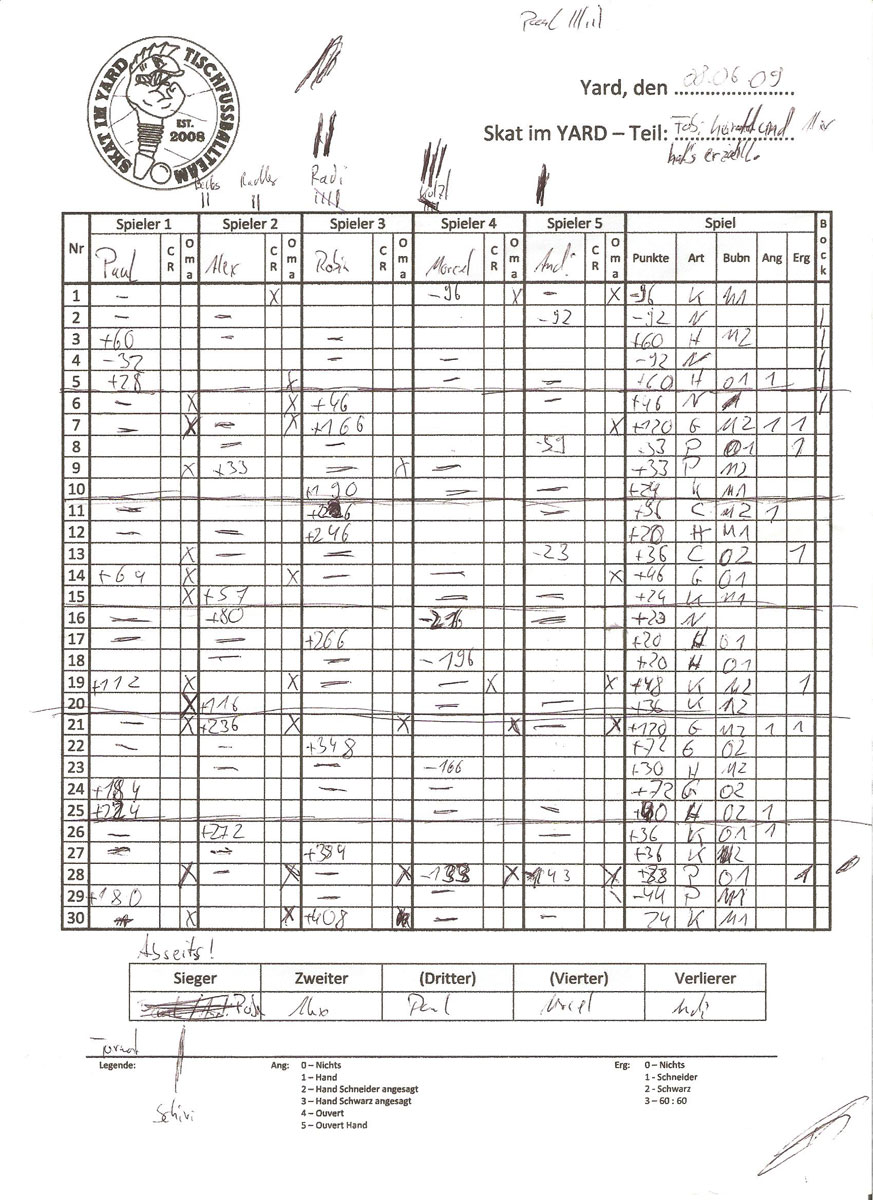 Paul
SKAT IM YARD TISCHFUSSBALLTEAM
EST. 2008
Yard, den 08.06 09
Skat im YARD – Teil:
hat's erzählt.
Radler Radi
Spieler 1 Spieler 2 Spieler 3 Spieler 4 Spieler 5 Spiel Bock
Nr Paul CR Oma Alex CR Oma Robin CR Oma Marcel CR Oma Andi CR Oma Punkte Art Bubn Ang Erg
1 – X -96 X – X -96 K M1
2 – – -92 -92 N /
3 +60 – – +60 H M2 /
4 -32 – – -92 N /
5 +28 X – +60 H O1 1 /
6 – X X +46 – +46 N /
7 – X – X +166 X +120 G M2 1 1
8 – – -59 -53 P O1 1
9 X +33 – X – +33 P M2
10 +190 – – +24 K M1
11 – – +36 C M2 1
12 – – +246 +20 H M1
13 X – – -23 +36 C O2 1
14 +64 X X – – X +46 G O1
15 X +57 – – +24 K M1
16 – +80 – +23 N
17 – – +266 +20 H O1
18 – – -196 +20 H O1
19 +112 X X – – X X +48 K M2 1
20 X +116 – – +36 K M2
21 – X +236 X X X – X +120 G M2 1 1
22 – – +348 +72 G O2
23 – – -166 +30 H M2
24 +184 – – +72 G O2
25 +224 – – H O2 1
26 – +272 – +36 K O1 1
27 – – +384 +36 K M2
28 X – X – X X X P O1 1
29 +180 – – -44 P M1
30 – X X +408 – – 24 K M1
Abseits!
Sieger Zweiter (Dritter) (Vierter) Verlierer
Robin Alex Paul Marcel Andi
Legende: Ang: 0 – Nichts Erg: 0 – Nichts
1 – Hand 1 - Schneider
2 – Hand Schneider angesagt 2 – Schwarz
3 – Hand Schwarz angesagt 3 – 60 : 60
4 – Ouvert
5 – Ouvert Hand
Schiri